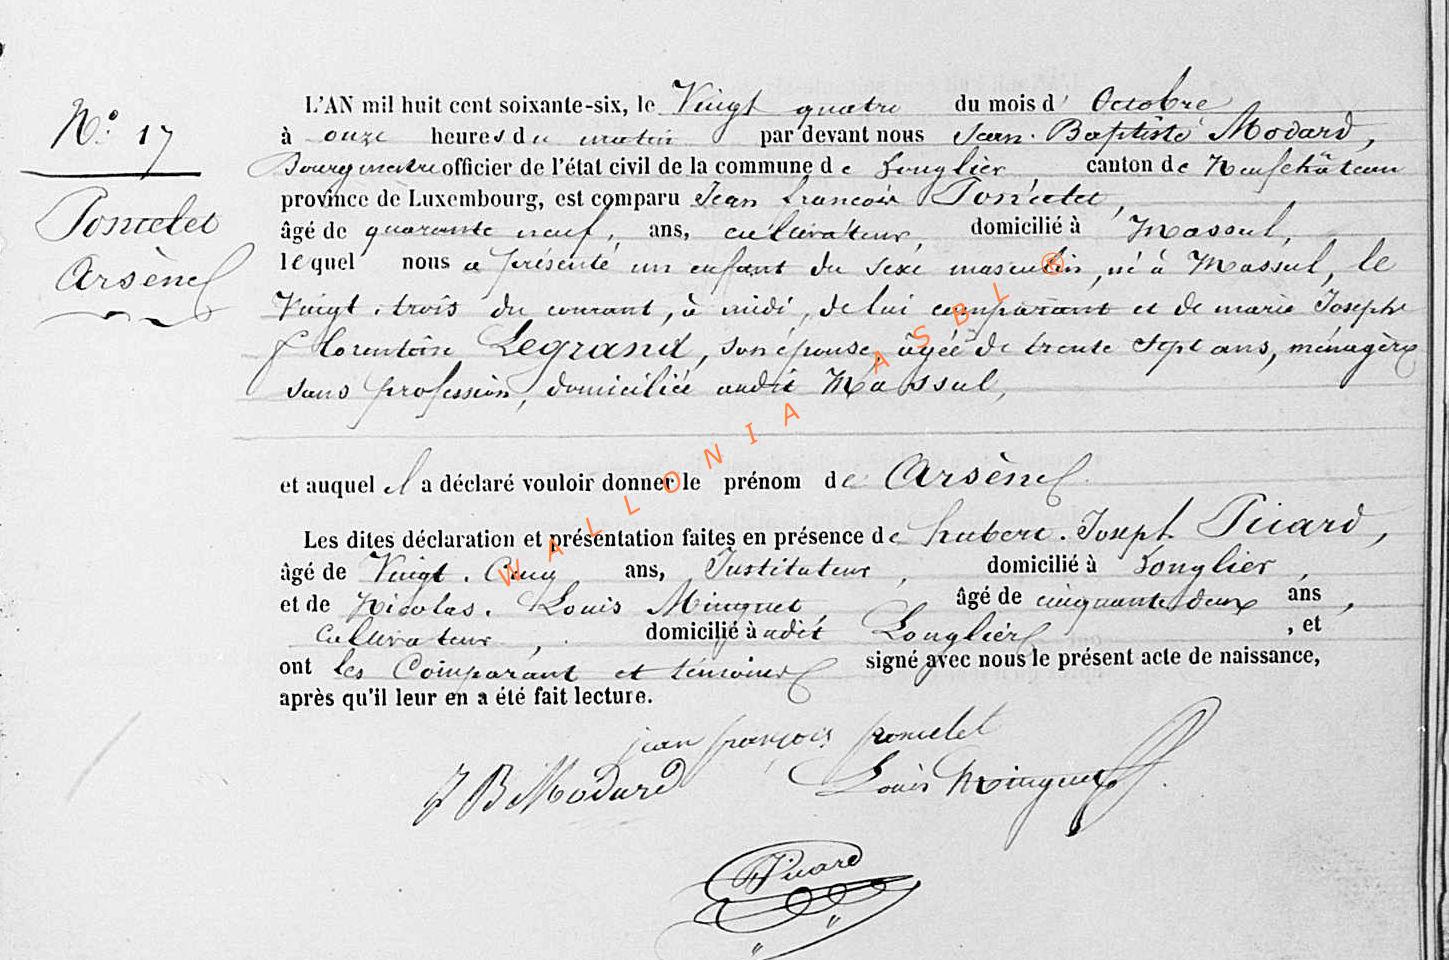 N° 17
Poncelet
Arsène
L'AN mil huit cent soixante-six, le Vingt quatre du mois d' Octobre
à onze heures du matin par devant nous Jean-Baptiste Modard,
Bourgmestre officier de l'état civil de la commune de Longlier, canton de Neufchâteau
province de Luxembourg, est comparu Jean francois Poncelet,
âgé de quarante neuf, ans, cultivateur, domicilié à Massul,
lequel nous a présenté un enfant du sexe masculin, né à Massul, le
Vingt-trois du courant, à midi, de lui comparant et de marie Joseph
florentine Legrand, son épouse, âgée de trente sept ans, ménagère
sans profession, domiciliée audit Massul,
et auquel il a déclaré vouloir donner le prénom de Arsène
Les dites déclaration et présentation faites en présence de hubert-Joseph Picard,
âgé de Vingt-Cinq ans, Instituteur, domicilié à Longlier,
et de Nicolas-Louis Minguet, âgé de cinquante deux ans,
Cultivateur, domicilié à udit Longlier, et
ont les Comparant et témoins signé avec nous le présent acte de naissance,
après qu'il leur en a été fait lecture.
jean françois poncelet
J B Modard Louis Minguet
Picard
WALLONIA ASBL ®